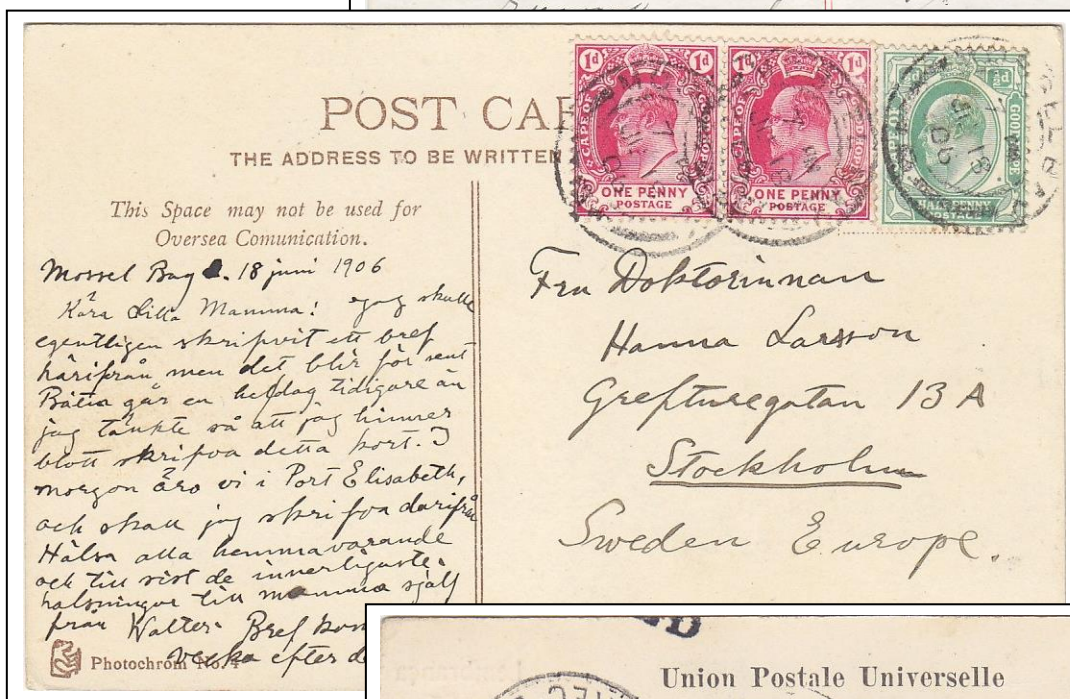 POST CA
THE ADDRESS TO BE WRITTEN
This Space may not be used for
Oversea Comunication.
Mossel Bay 18 juni 1906
Kära Lilla Mamma! jag skulle
egentligen skrifvit ett bref
härifrån men det blir för sent
Båten går en heldag tidigare än
jag tänkte så att jag hinner
blott skrifva detta kort. I
morgon äro vi i Port Elisabeth,
och skall jag skrifva därifrån
Hälsa alla hemmavarande
och till sist de innerligaste
hälsningar till mamma själf
från Walter. Bref kom
vecka efter d
Photochrom No.
1d 1d
CAPE OF GOOD HOPE
ONE PENNY
POSTAGE
1d 1d
CAPE OF GOOD HOPE
ONE PENNY
POSTAGE
½d
GOOD HOPE
HALF PENNY
POSTAGE
Fru Doktorinnan
Hanna Larsson
Grefturegatan 13 A
Stockholm
Sweden Europe.
Union Postale Universelle